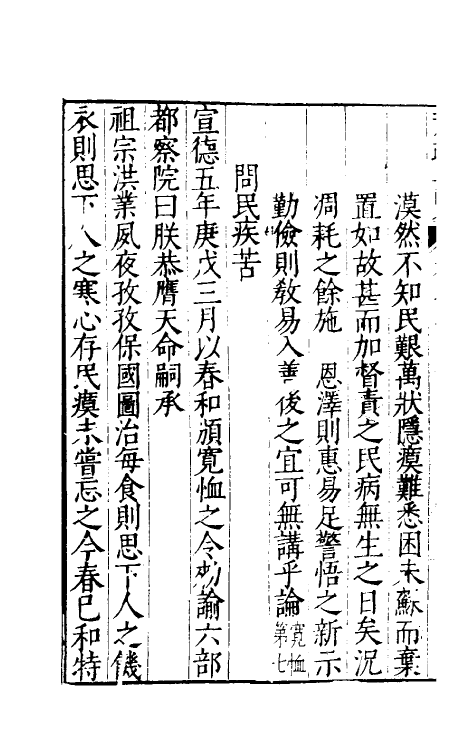 漠然不知民艱萬狀隱瘼難悉困未蘇而棄
置如故甚而加督責之民病無生之日矣況
凋耗之餘施　恩澤則惠易足警悟之新示
勤儉則敎易入善後之宜可無講乎論寬恤第七
問民疾苦
宣德五年庚戊三月以春和頒寬恤之令勑諭六部
都察院曰朕恭膺天命嗣承
祖宗洪業夙夜孜孜保國圖治每食則思下人之饑
衣則思下人之寒心存民瘼未嘗忘之今春巳和特